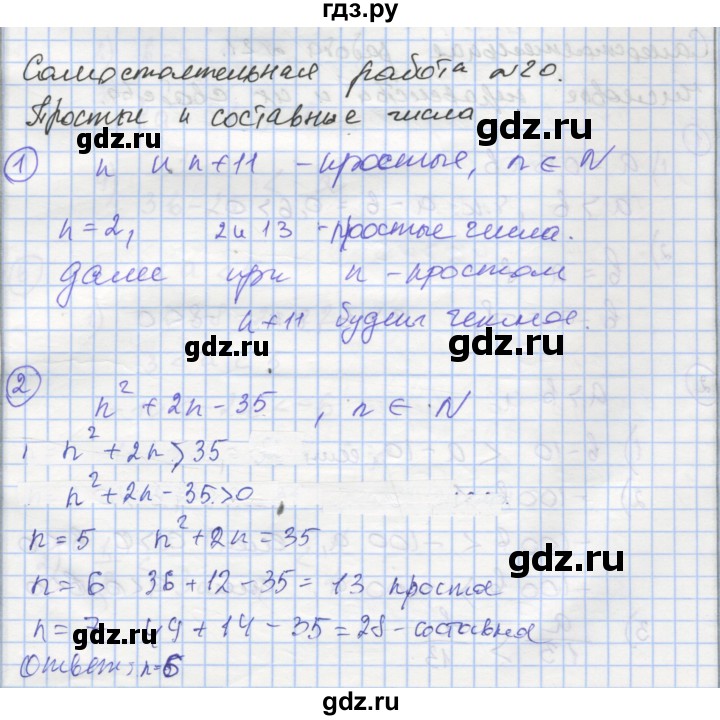 гдз.ру
Самостоятельная работа №20.
Простые и составные числа
1 n и n+11 - простые, n ∈ N
n=2, 2 и 13 - простые числа.
далее при n - простом
gdz.ru gdz.ru
n+11 будет четное.
gdz.ru gdz.ru
2 n² + 2n - 35, n ∈ N
n² + 2n > 35
gdz.ru gdz.ru
n² + 2n - 35 > 0
n=5 n² + 2n = 35
gdz.ru
n=6 36 + 12 - 35 = 13 простая
n=7 49 + 14 - 35 = 28 - составная
gdz.ru
Ответ: n=6
gdz.ru
gdz.ru